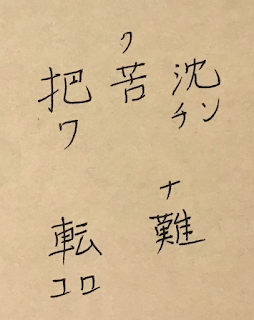 ク
把苦沈
ワ チン
ナ
転 難
コロ